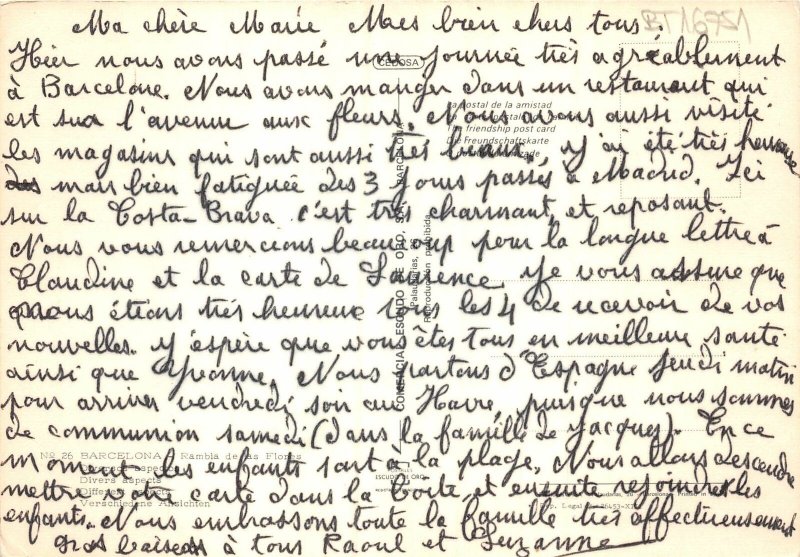 BT16751
Ma chère Marie Mes bien chers tous.
Hier nous avons passé une journée très agréablement
à Barcelone. Nous avons manger dans un restaurant qui
est sur l'avenue aux fleurs. Nous avons aussi visité
les magasins qui sont aussi très beaux. J'ai été très heureuse
mais bien fatiguée des 3 jours passés à Madrid. Ici
sur la Costa-Brava c'est très charmant et reposant.
Nous vous remercions beaucoup pour la longue lettre à
Claudine et la carte de Laurence. Je vous assure que
nous étions très heureux tous les 4 de recevoir de vos
nouvelles. J'espère que vous êtes tous en meilleure santé
ainsi que Yvonne. Nous partons d'Espagne jeudi matin
pour arriver vendredi soir au Havre, puisque nous sommes
de communion samedi (dans la famille de Jacques). En ce
moment les enfants sont à la plage. Nous allons descendre
mettre votre carte dans la boite et ensuite rejoindre les
enfants. Nous embrassons toute la famille très affectueusement
gros baisers à tous Raoul et Suzanne
CEDOSA
La postal de la amistad
The friendship post card
Die Freundschaftskarte
COMERCIAL ESCUDO DE ORO, S.A. BARCELONA
Palaudarias, 26
Reproducción prohibida
Nº 26 BARCELONA
Rambla de las Flores
Divers aspects
Different aspects
Verschiedene Ansichten
ESCUDO DE ORO